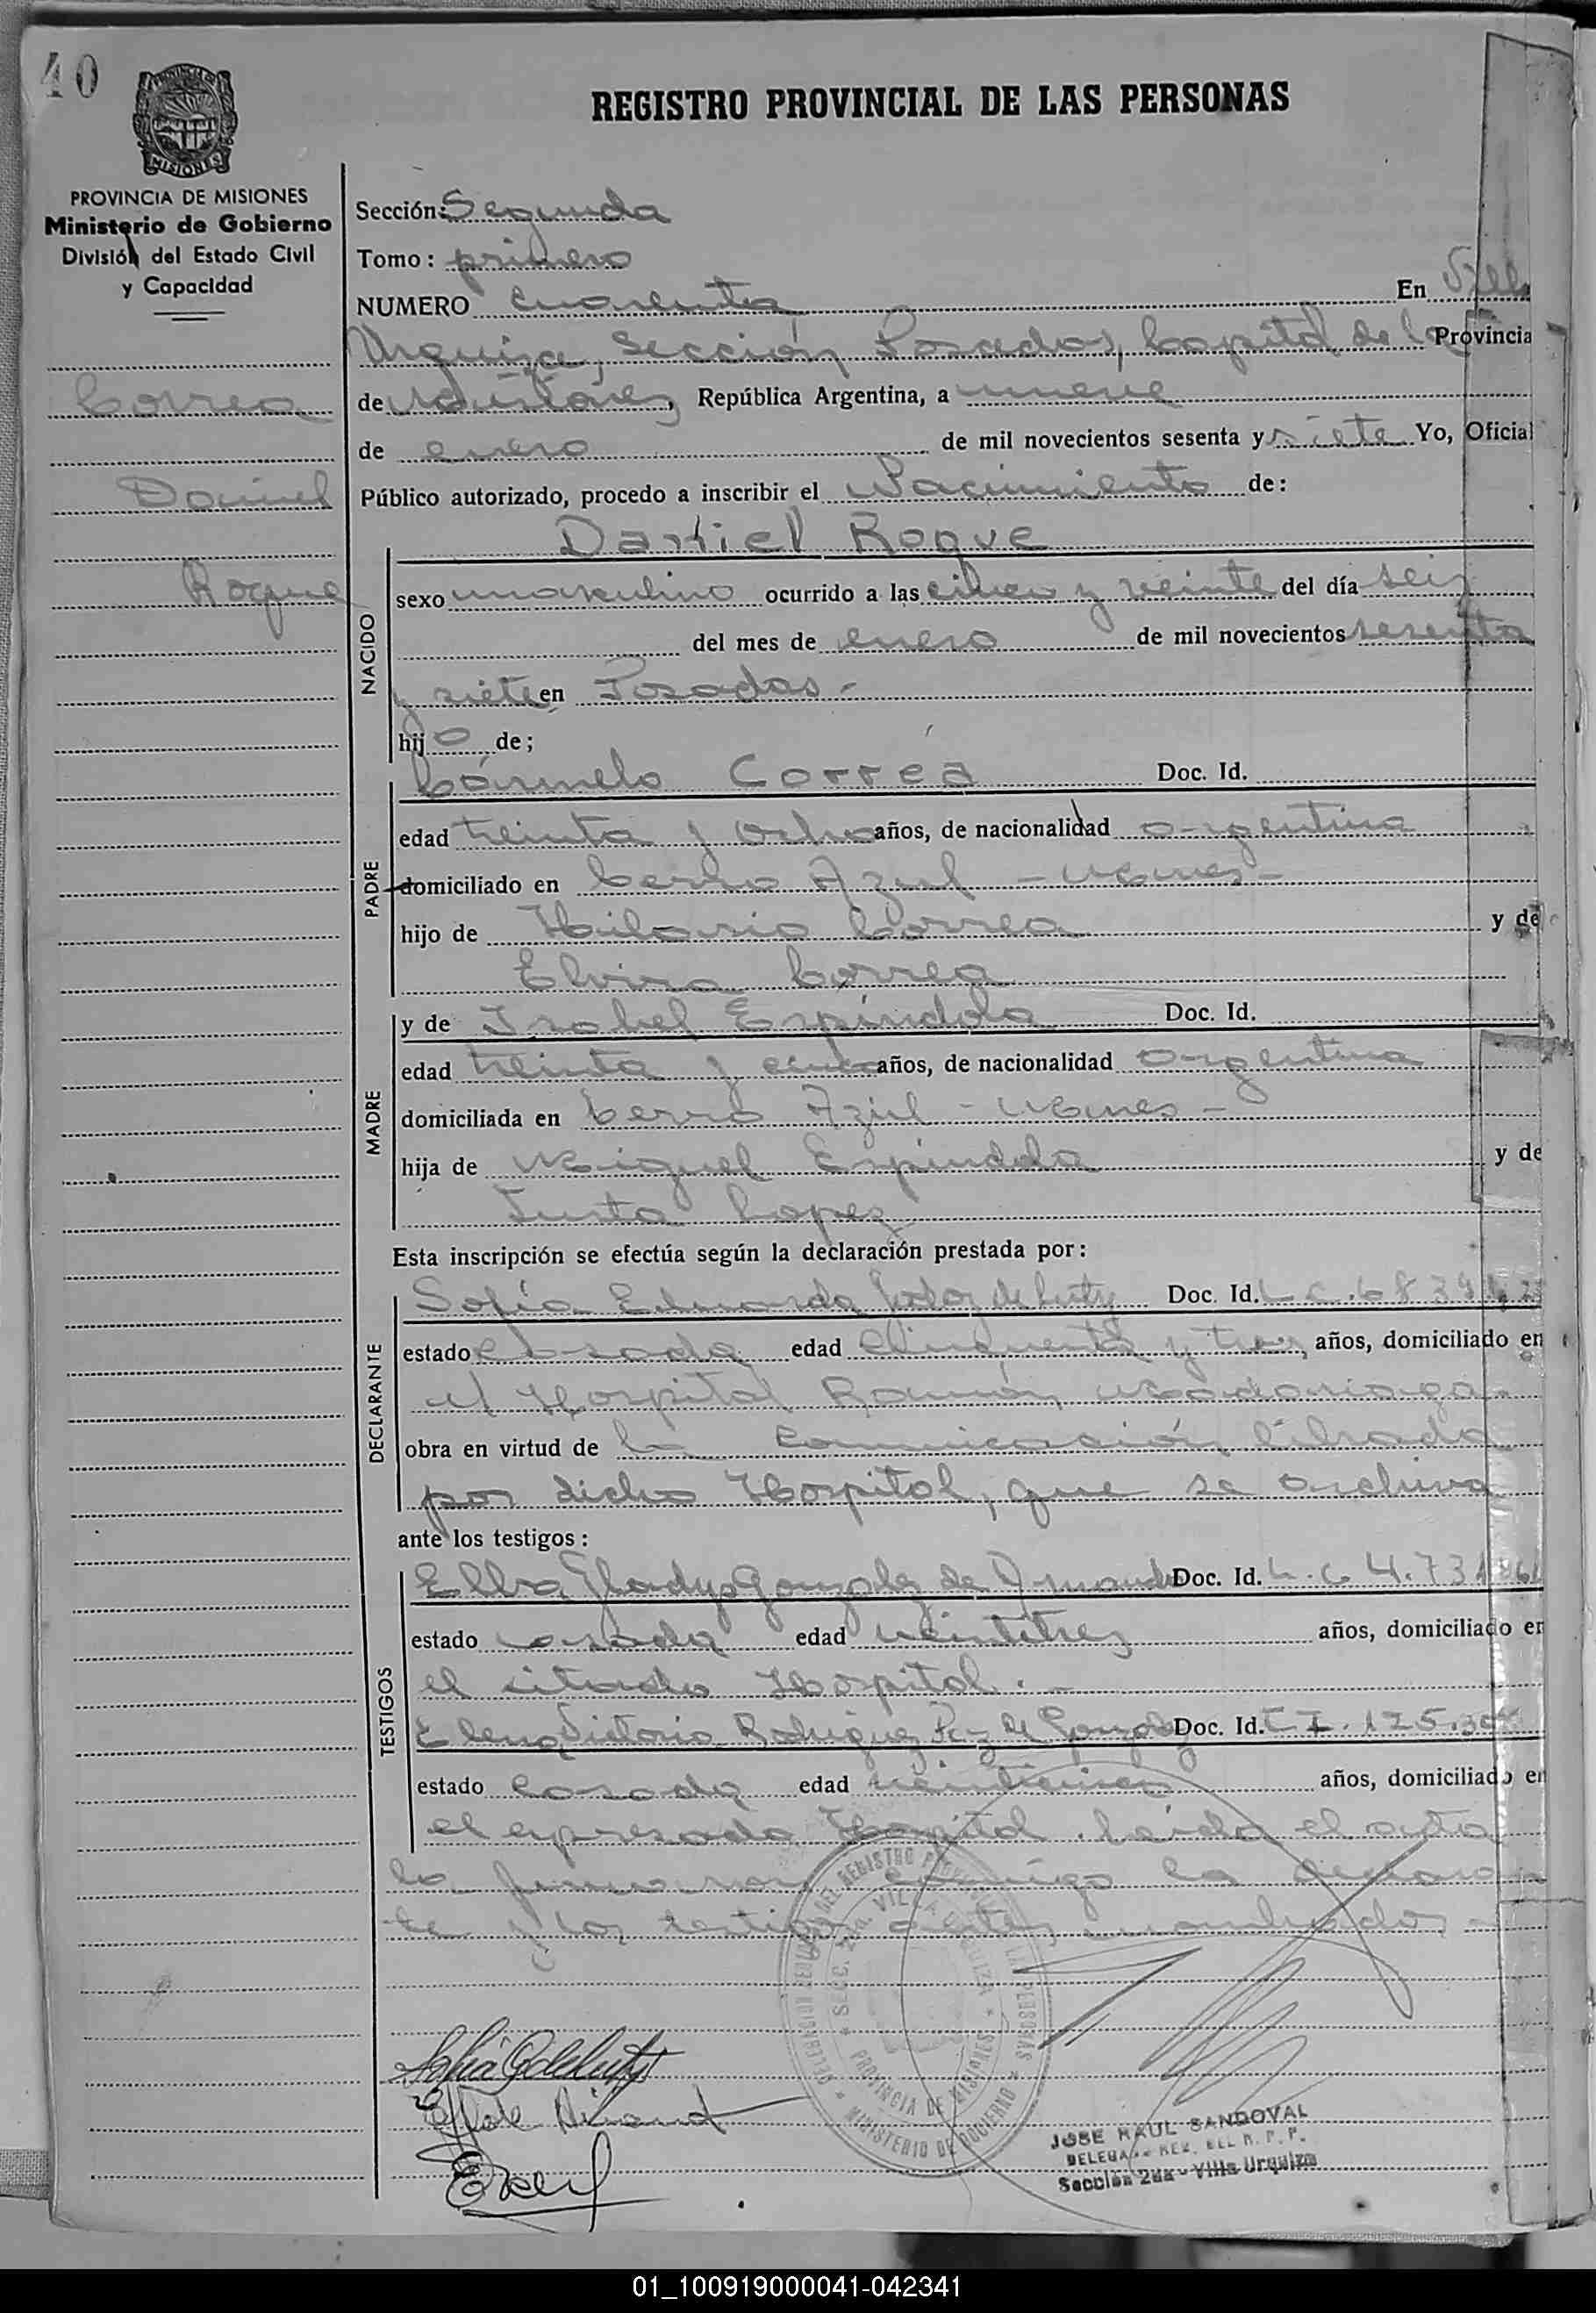 40
REGISTRO PROVINCIAL DE LAS PERSONAS
MISIONES
PROVINCIA DE MISIONES
Ministerio de Gobierno
División del Estado Civil
y Capacidad
Correa
Daniel
Roque
Sección: Segunda
Tomo: primero
NUMERO cuarenta En Villa
Urquiza, Sección Posadas, Capital de la Provincia
de Misiones, República Argentina, a nueve
de enero de mil novecientos sesenta y siete Yo, Oficial
Público autorizado, procedo a inscribir el Nacimiento de:
Daniel Roque
NACIDO
sexo masculino ocurrido a las cinco y veinte del día seis
del mes de enero de mil novecientos sesenta
y siete en Posadas.-
hijo de;
PADRE
Cármelo Correa Doc. Id.
edad treinta y ocho años, de nacionalidad argentina
domiciliado en Cerro Azul - Mnes -
hijo de Hilario Correa y de
Elvira Correa
MADRE
y de Isabel Espíndola Doc. Id.
edad treinta y cinco años, de nacionalidad argentina
domiciliada en Cerro Azul - Mnes -
hija de Miguel Espíndola y de
Justa Lopez
Esta inscripción se efectúa según la declaración prestada por:
DECLARANTE
Sofía Eduarda de Doc. Id. L.C.
estado casada edad cincuenta y tres años, domiciliado en
el Hospital Ramón Madariaga
obra en virtud de la Comunicación librada
por dicho Hospital, que se archiva
ante los testigos:
TESTIGOS
Elba Gladys Gonzalez de Doc. Id. L.C. 4.731
estado casada edad veintitres años, domiciliado en
el citado Hospital.-
Elena Victoria Rodriguez Paz de Gonzalez Doc. Id. C.I. 175.30
estado casada edad años, domiciliado en
el expresado Hospital. Leída el acta
la firmaron conmigo la declaran
te y los testigos antes nombrados -
DELEGACION DEL REGISTRO PROVINCIAL DE LAS PERSONAS
SECC. 2da. VILLA URQUIZA
PROVINCIA DE MISIONES
MINISTERIO DE GOBIERNO
JOSE RAUL SANDOVAL
R. P. P.
Sección 2da - Villa Urquiza
01_100919000041-042341